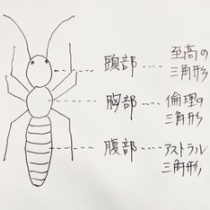 頭部
至高の
三角形
胸部
倫理の
三角形
腹部
アストラル
三角形